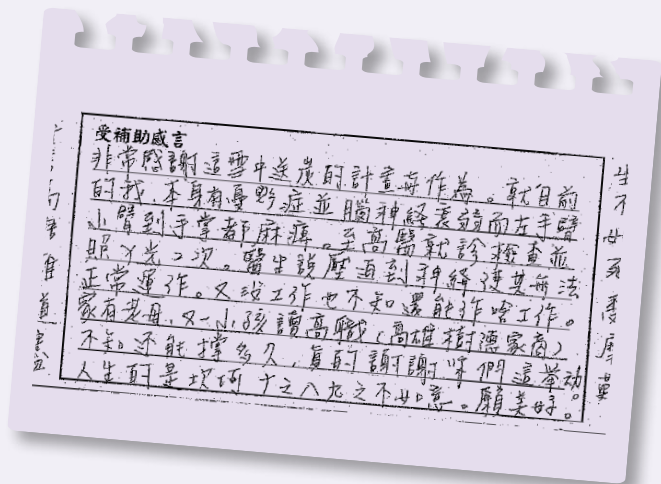 受補助感言
非常感謝這雪中送炭的計畫與作為。就目前
的我,本身有憂鬱症並腦神經衰弱而左手臂
小臂到手掌都麻痺。至高醫就診檢查並
照X光2次。醫生說壓迫到神經使其無法
正常運作。又沒工作也不知還能作啥工作。
家有老母,又一小孩讀高職(高雄樹德家商)
不知还能撐多久,真的謝謝你們這举动。
人生的是坎坷 十之八九之不如意。願美好。